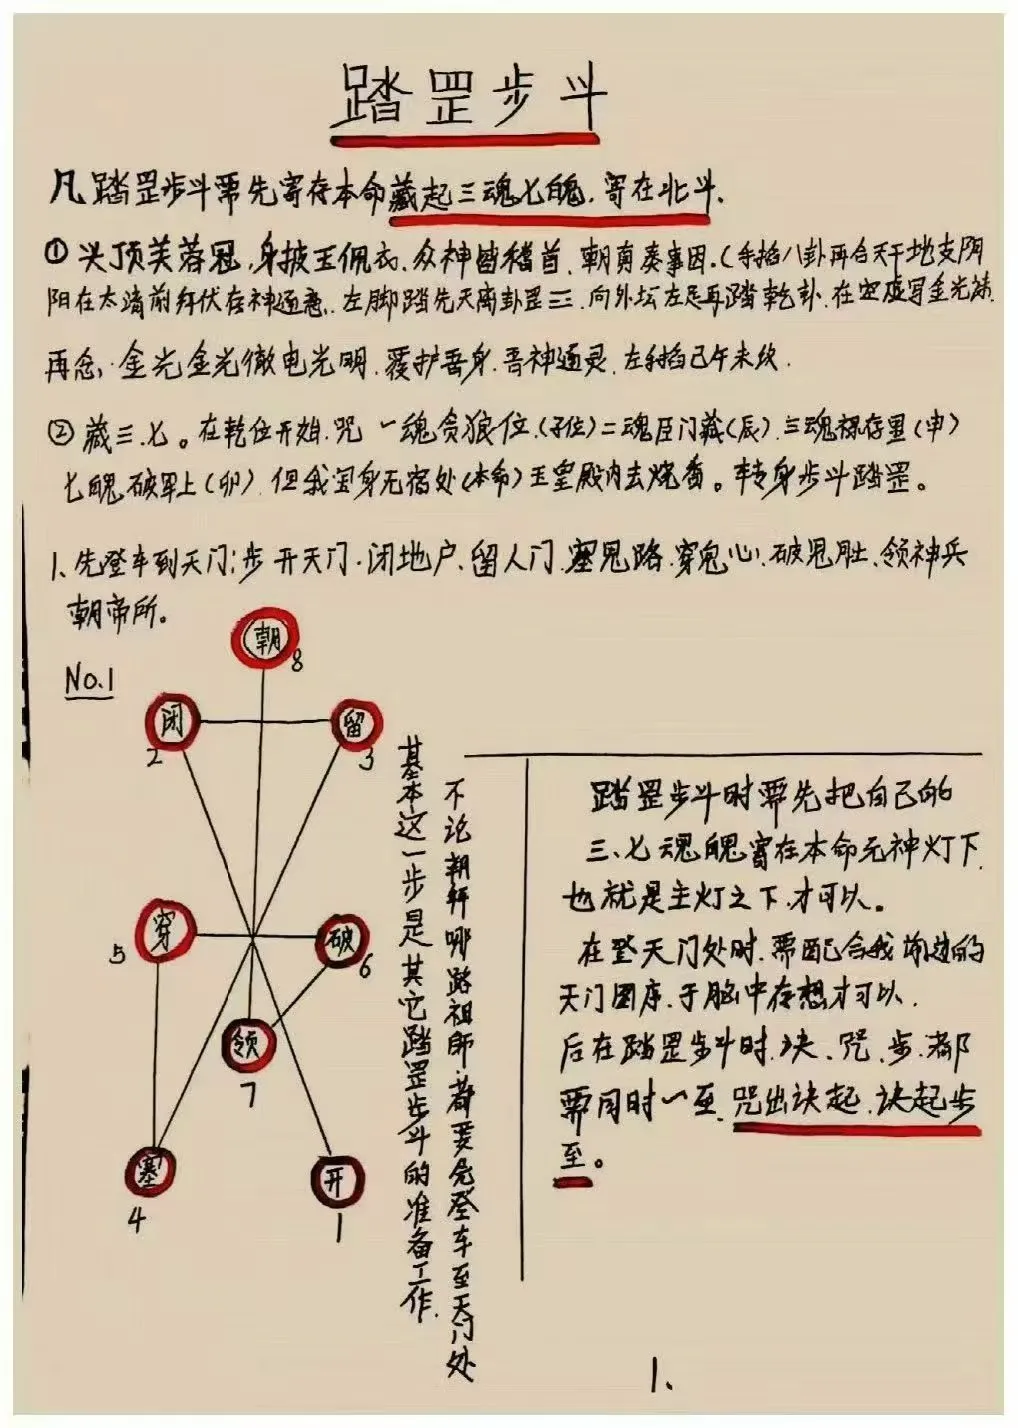 踏罡步斗
凡踏罡步斗需先寄存本命藏起三魂七魄.寄在北斗.
① 头顶芙蓉冠.身披玉佩衣.众神皆稽首.朝真奏事因.(手掐八卦再合天干地支阴
阳在太清前拜伏存神通意.左脚踏先天离卦罡三.向外坛左足再踏乾卦.在空虚写金光
再念:金光金光徹电光明.覆护吾身.吾神通灵.左手掐己午未纹.
② 藏三.七。在乾位开始.咒 一魂贪狼位.(子位)二魂巨门藏(辰).三魂禄存里(申)
七魄破军上(卯).但我宝身无宿处(本命)玉皇殿内去烧香。转身步斗踏罡。
1、先登车到天门:步 开天门.闭地户.留人门.塞鬼路.穿鬼心.破鬼肚.领神兵
朝帝所。
No.1
朝
8
闭
2
留
3
穿
5
破
6
领
7
塞
4
开
1
不论朝拜哪路祖師.都要先登车至天门处
基本这一步是其它踏罡步斗的准备工作.
踏罡步斗时需先把自己的
三、七魂魄寄在本命元神灯下.
也就是主灯之下.才可以。
在登天门处时.需配合我 的
天门图序.于脑中存想才可以.
后在踏罡步斗时.决、咒、步.都
需同时一至.咒出诀起.诀起步
至。
1.